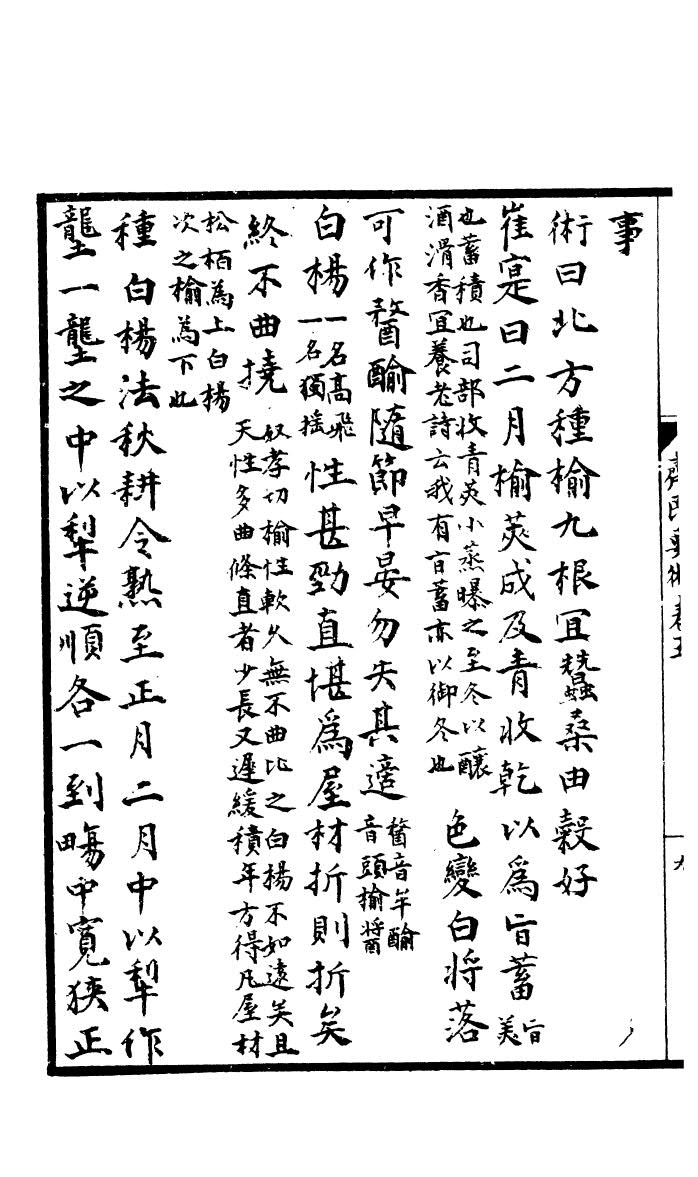 事
術曰北方種榆九根宜蠶桑由穀好
崔寔曰二月榆莢成及青收乾以爲旨蓄旨美
也蓄積也司部收青莢小蒸曝之至冬以釀
酒滑香宜養老詩云我有旨蓄亦以御冬也
色變白將落
可作䤅隨節早晏勿失其適
音牟䤅
音頭榆醬
白楊
一名高飛
一名獨搖
性甚勁直堪爲屋材折則折矣
終不曲撓
奴孝切榆性軟久無不曲比之白楊不如遠矣且
天性多曲條直者少長又遲緩積年方得凡屋材
松栢為上白楊
次之榆為下也
種白楊法秋耕令熟至正月二月中以犁作
壟一壟之中以犁逆順各一到畼中寬狹正
齊民要術卷五
九